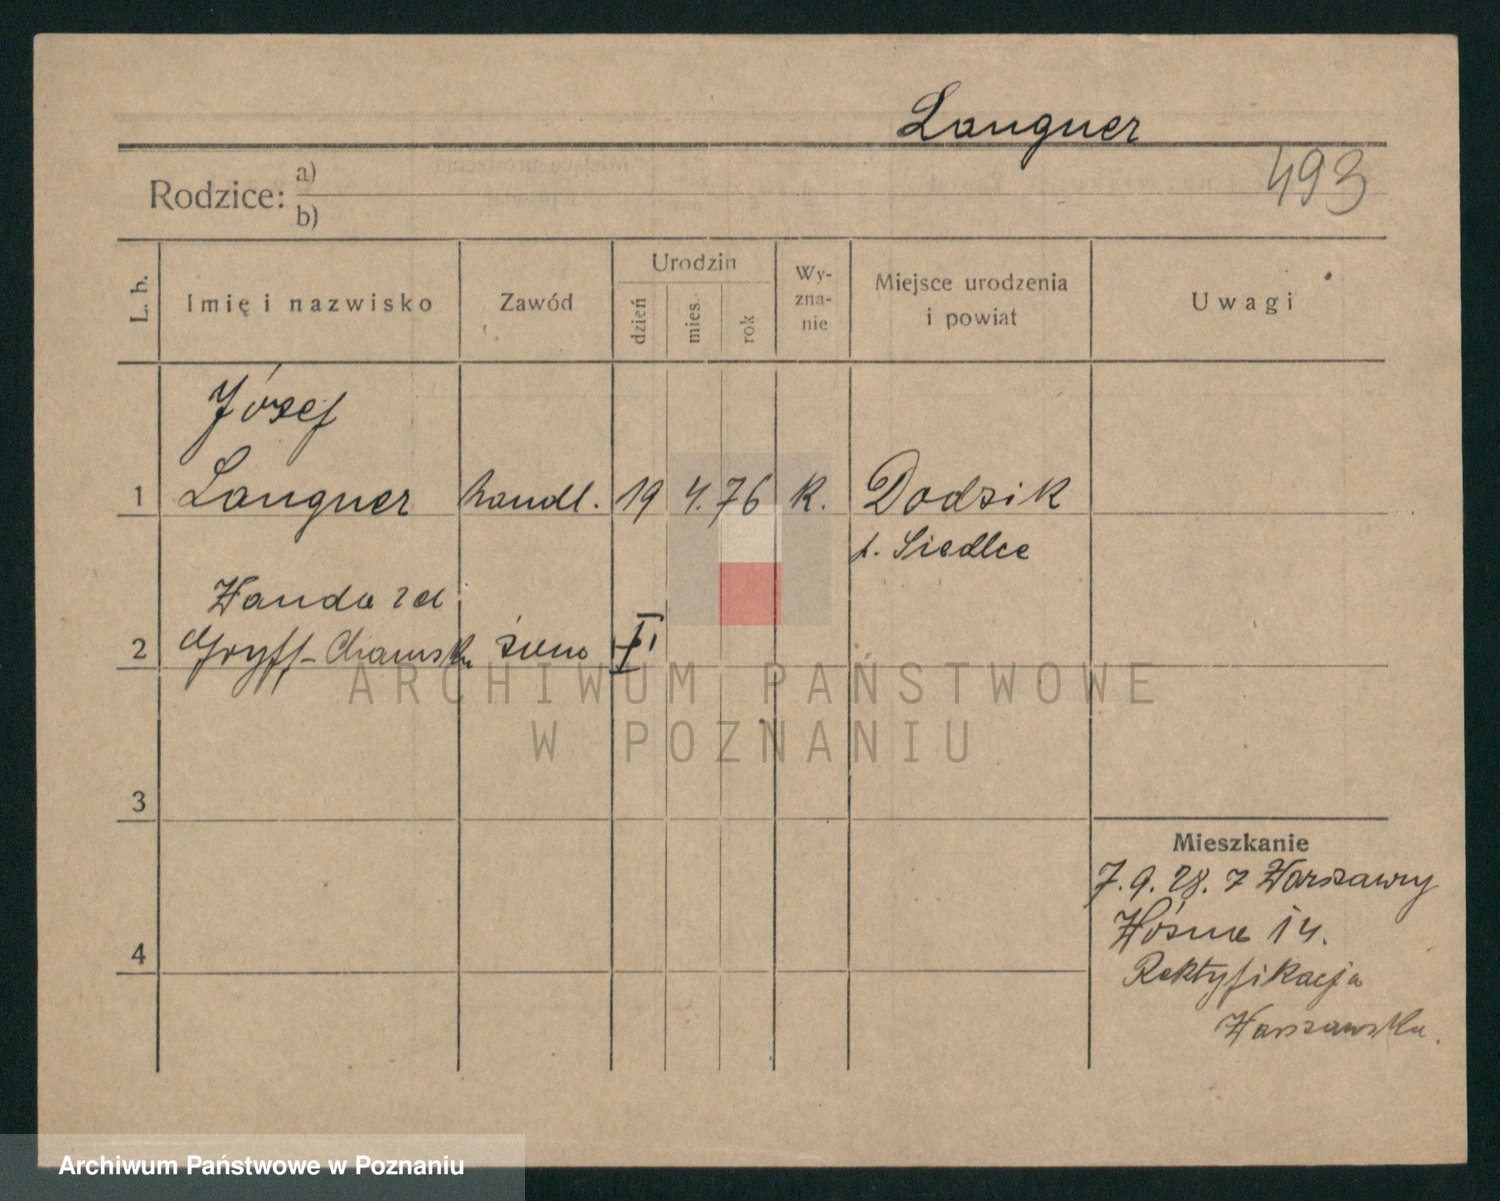 Langner
493
Rodzice: a)
b)
L. b.
Imię i nazwisko
Zawód
Urodzin
dzień
mies.
rok
Wy-
zna-
nie
Miejsce urodzenia
i powiat
Uwagi
Józef
1 Langner handl. 19 4. 76 K. Dodzik
p. Siedlce
Wanda zd
2 Gryff-Chamska żona
3
Mieszkanie
7.9.28. z Warszawy
Wózna 14.
4
Rektyfikacja
Warszawska.
ARCHIWUM PAŃSTWOWE
W POZNANIU
Archiwum Państwowe w Poznaniu